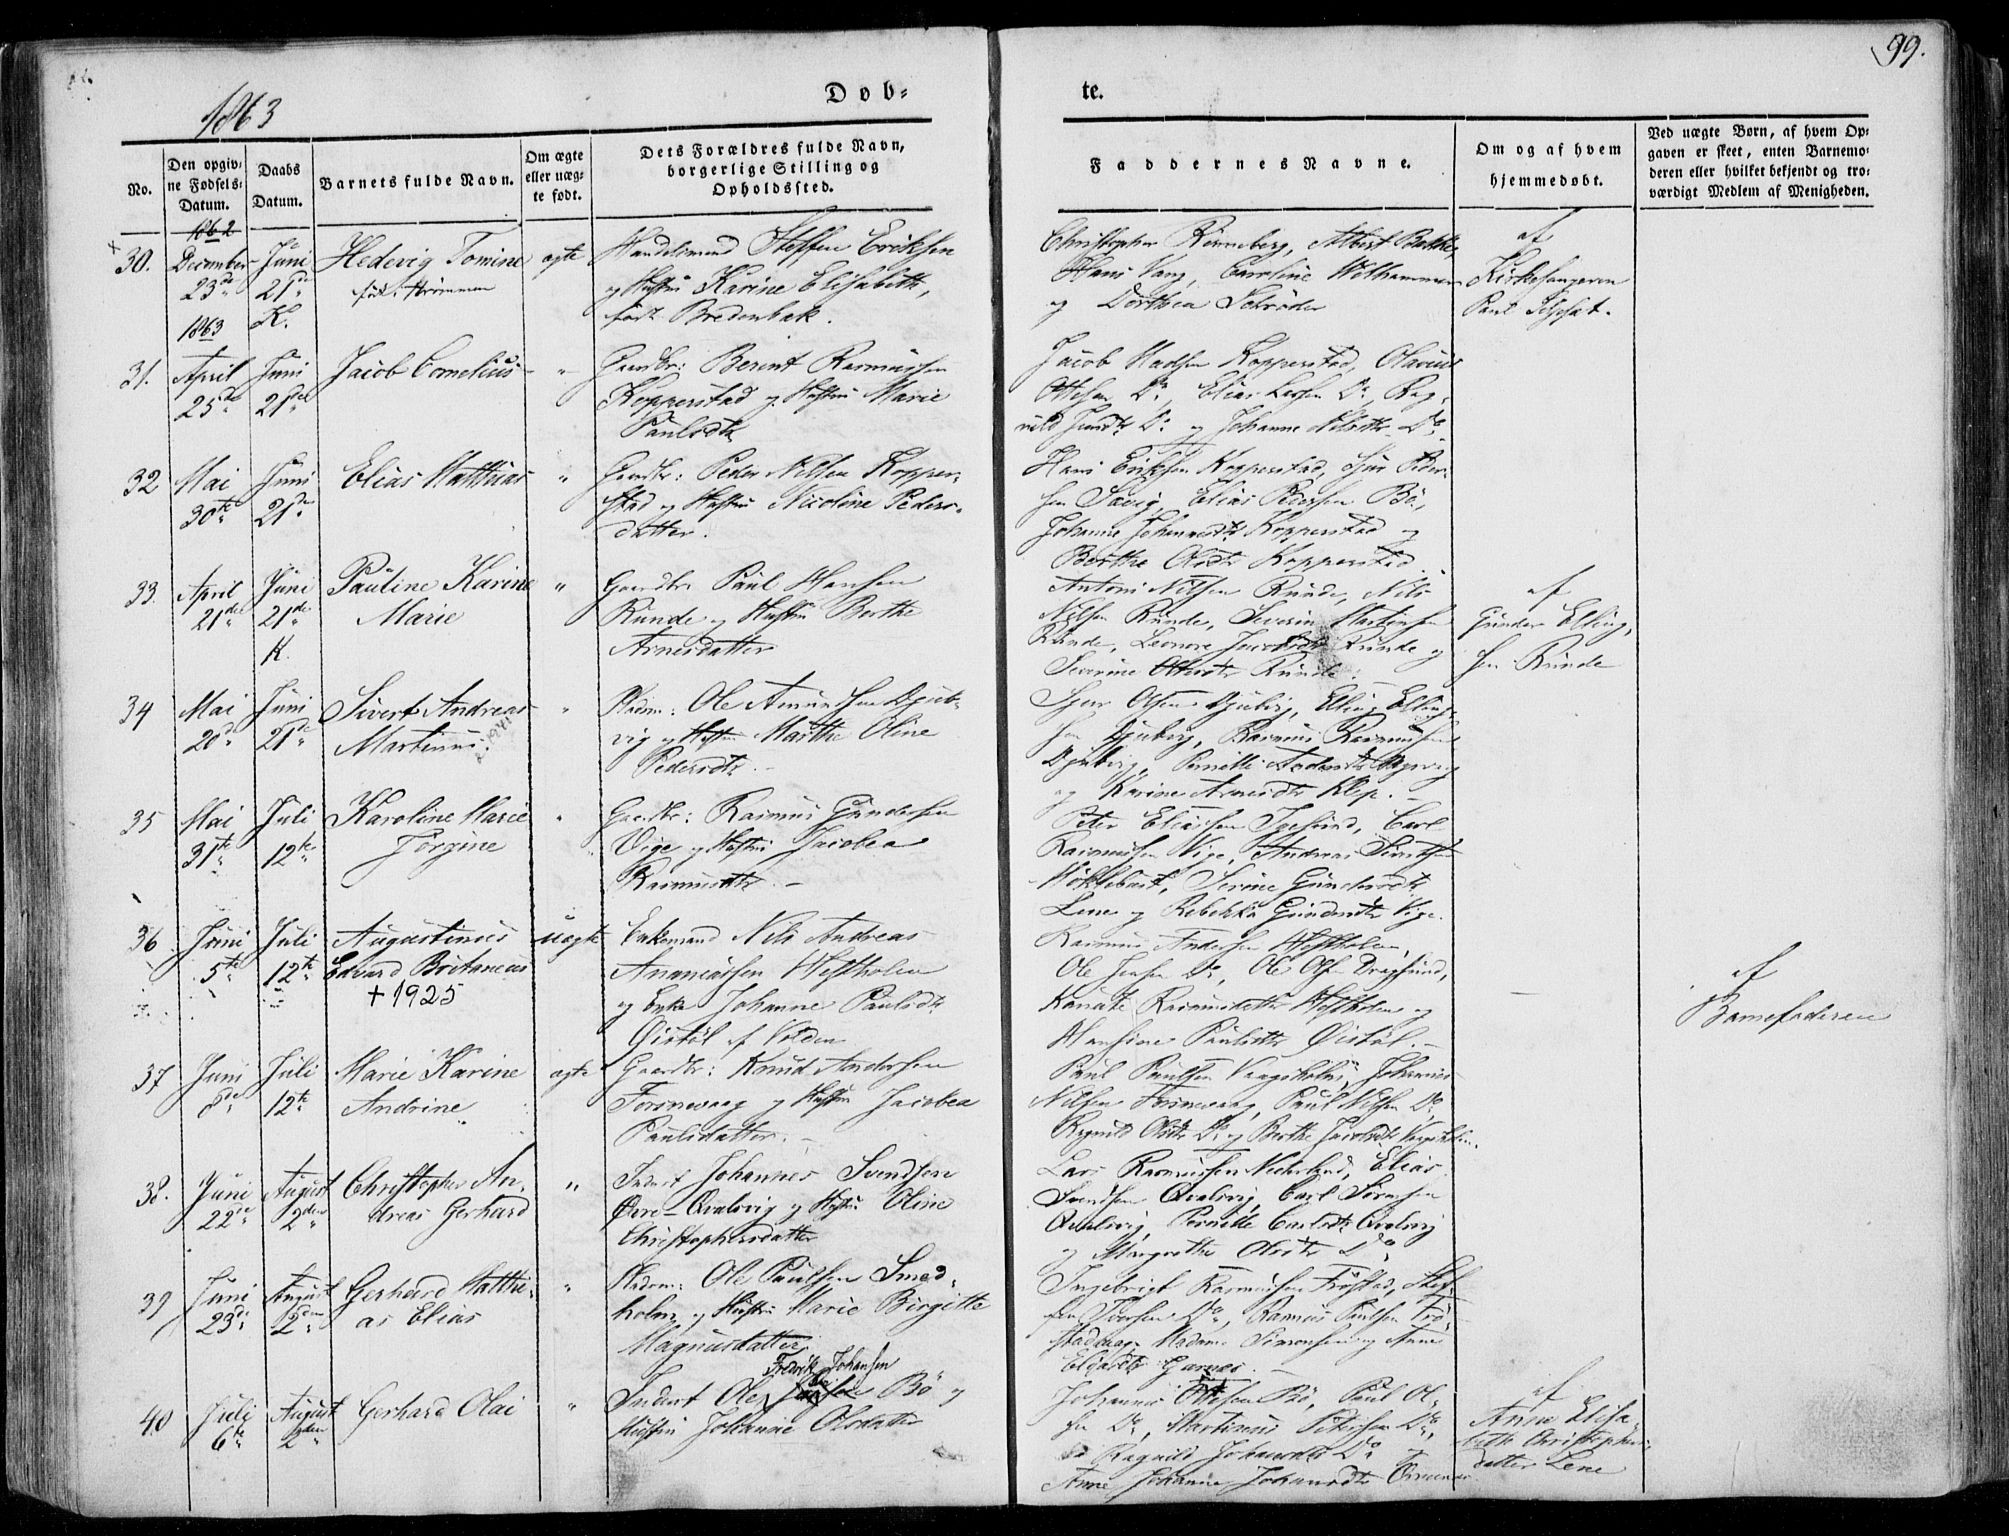 99.
1863
Dob-
te.
No.
Den opgiv-
ne Fødsels-
Datum.
Daabs
Datum.
Barnets fulde Navn.
Om ægte
eller uæg-
te født.
Dets Forældres fulde Navn,
borgerlige Stilling og
Opholdssted.
Faddernes Navne.
Om og af hvem
hjemmedøbt.
Ved uægte Børn, af hvem Op-
gaven er skeet, enten Barnemo-
deren eller hvilket bekjendt og tro-
værdigt Medlem af Menigheden.
1862
30. December 23de
Juni 21de K.
Hedevig Tomine
ægte
Handelsmand Steffen Eriksen
og Hustru Karine Elisabeth,
født Bredenbak.
Christopher Rønneberg, Albert
Hans Vang, Caroline
og Dorthea Schrøder
af
Kirkesangeren
Paul
1863
31. April 25de
Juni 21de
Jacob Cornelius
"
Gaardbr: Berent Rasmussen
Kopperstad og Hustru Marie
Paulsdtr
Jacob Madsen Kopperstad, Olavius
Ottesen Do, Elias Larsen Do, Rag-
nild Do og Johanne Nilsdtr Do
32 Mai 30te
Juni 21de
Elias Matthias
"
Gaardbr: Peder Nilsen Kopper-
stad og Hustru Nicoline Peders-
datter.
Hans Eriksen Kopperstad, Sjur Peder-
sen Elias Pedersen Bø,
Johanne Johannesdtr Kopperstad og
Berthe Olsdtr Kopperstad.
33. April 21de
Juni 21de K.
Pauline Karine
Marie
"
Gaardbr Paul Hansen
Runde og Hustru Berthe
Arnesdatter
Antoni Nilsen Runde, Nils
Nilsen Runde, Severin Martinsen
Runde, Leonore Jacobsdtr Runde og
Severine Runde.
af
Gunder Elling-
sen Runde
34 Mai 20de
Juni 21de
Sivert Andreas
Martinus.
"
Ole Amundsen Djub-
vig og Hustru Marthe Oline
Pedersdtr.
Sjur Olsen Djubvig, Elling Elling-
sen Djubvig, Rasmus Rasmussen
Djubvig, Pernille
og Karine Arnesdtr Klep.
35 Mai 31te
Juli 12te
Karoline Marie
Jørgine
"
Gaardbr: Rasmus Gundersen
Vige og Hustru Jacobea
Rasmusdtr.
Peter Eliassen Igesund, Carl
Rasmussen Vige, Andreas
Myklebust, Serine Gundersdtr
Lene og Rebekka Gundersdtr Vige.
36 Juni 5te
Juli 12te
Augustinus
Edvard Britaneus
+ 1925
uægte
Enkemand Nils Andreas
Ananiassen Hestholm
og Enke Johanne Paulsdtr
Øistøl af Volden
Rasmus Andersen Hestholm,
Ole Jensen Do, Ole Olsen Dragsund,
Rasmusdatter Hestholm og
Hansine Paulsdtr Øistøl.
af
Barnefaderen
37 Juni 8de
Juli 12te
Marie Karine
Andrine
ægte
Gaardbr: Knud Andersen
Torsnevaag og Hustru Jacobea
Paulsdatter.
Paul Paulsen Vaagsholm, Johannes
Nilsen Torsnevaag, Paul Nilsen Do,
Ragnild Olsdtr Do og Berthe Jacobsdtr Vaagsholm.
38. Juni 22de
August 2den
Christopher An-
dreas Gerhard
"
Inderst Johannes Svendsen
Øvre-Qvalsvig og Hustru Oline
Christophersdatter
Lars Rasmussen Elias
Svendsen Qvalsvig, Carl Sørensen
Qvalsvig, Pernille Carlsdtr Qvalsvig
og Margrethe Olsdtr Do
39 Juni 23de
August 2den
Gerhard Matthi-
as Elias
"
Ole Paulsen Smed-
holm og Hustru Marie Birgitte
Magnusdatter
Ingebrigt Rasmussen Frøstad, Stef-
fen Iversen Do, Rasmus Paulsen Frø-
stadvaag, Madam Simonsen og Anne
Eliasdtr Garnes.
40 Juli 6te
August 2den
Gerhard Olai
"
Fredrik Johansen
Inderst Ole Bø og
Hustru Johanne Olsdatter
Johannes Ottesen Bø, Paul Ol-
sen Do, Martinus Petersen Do,
Ragnild Johansdtr Do og
Anne Johanne Johansdtr
af
Anne Elisa-
beth Christophers-
datter Lene